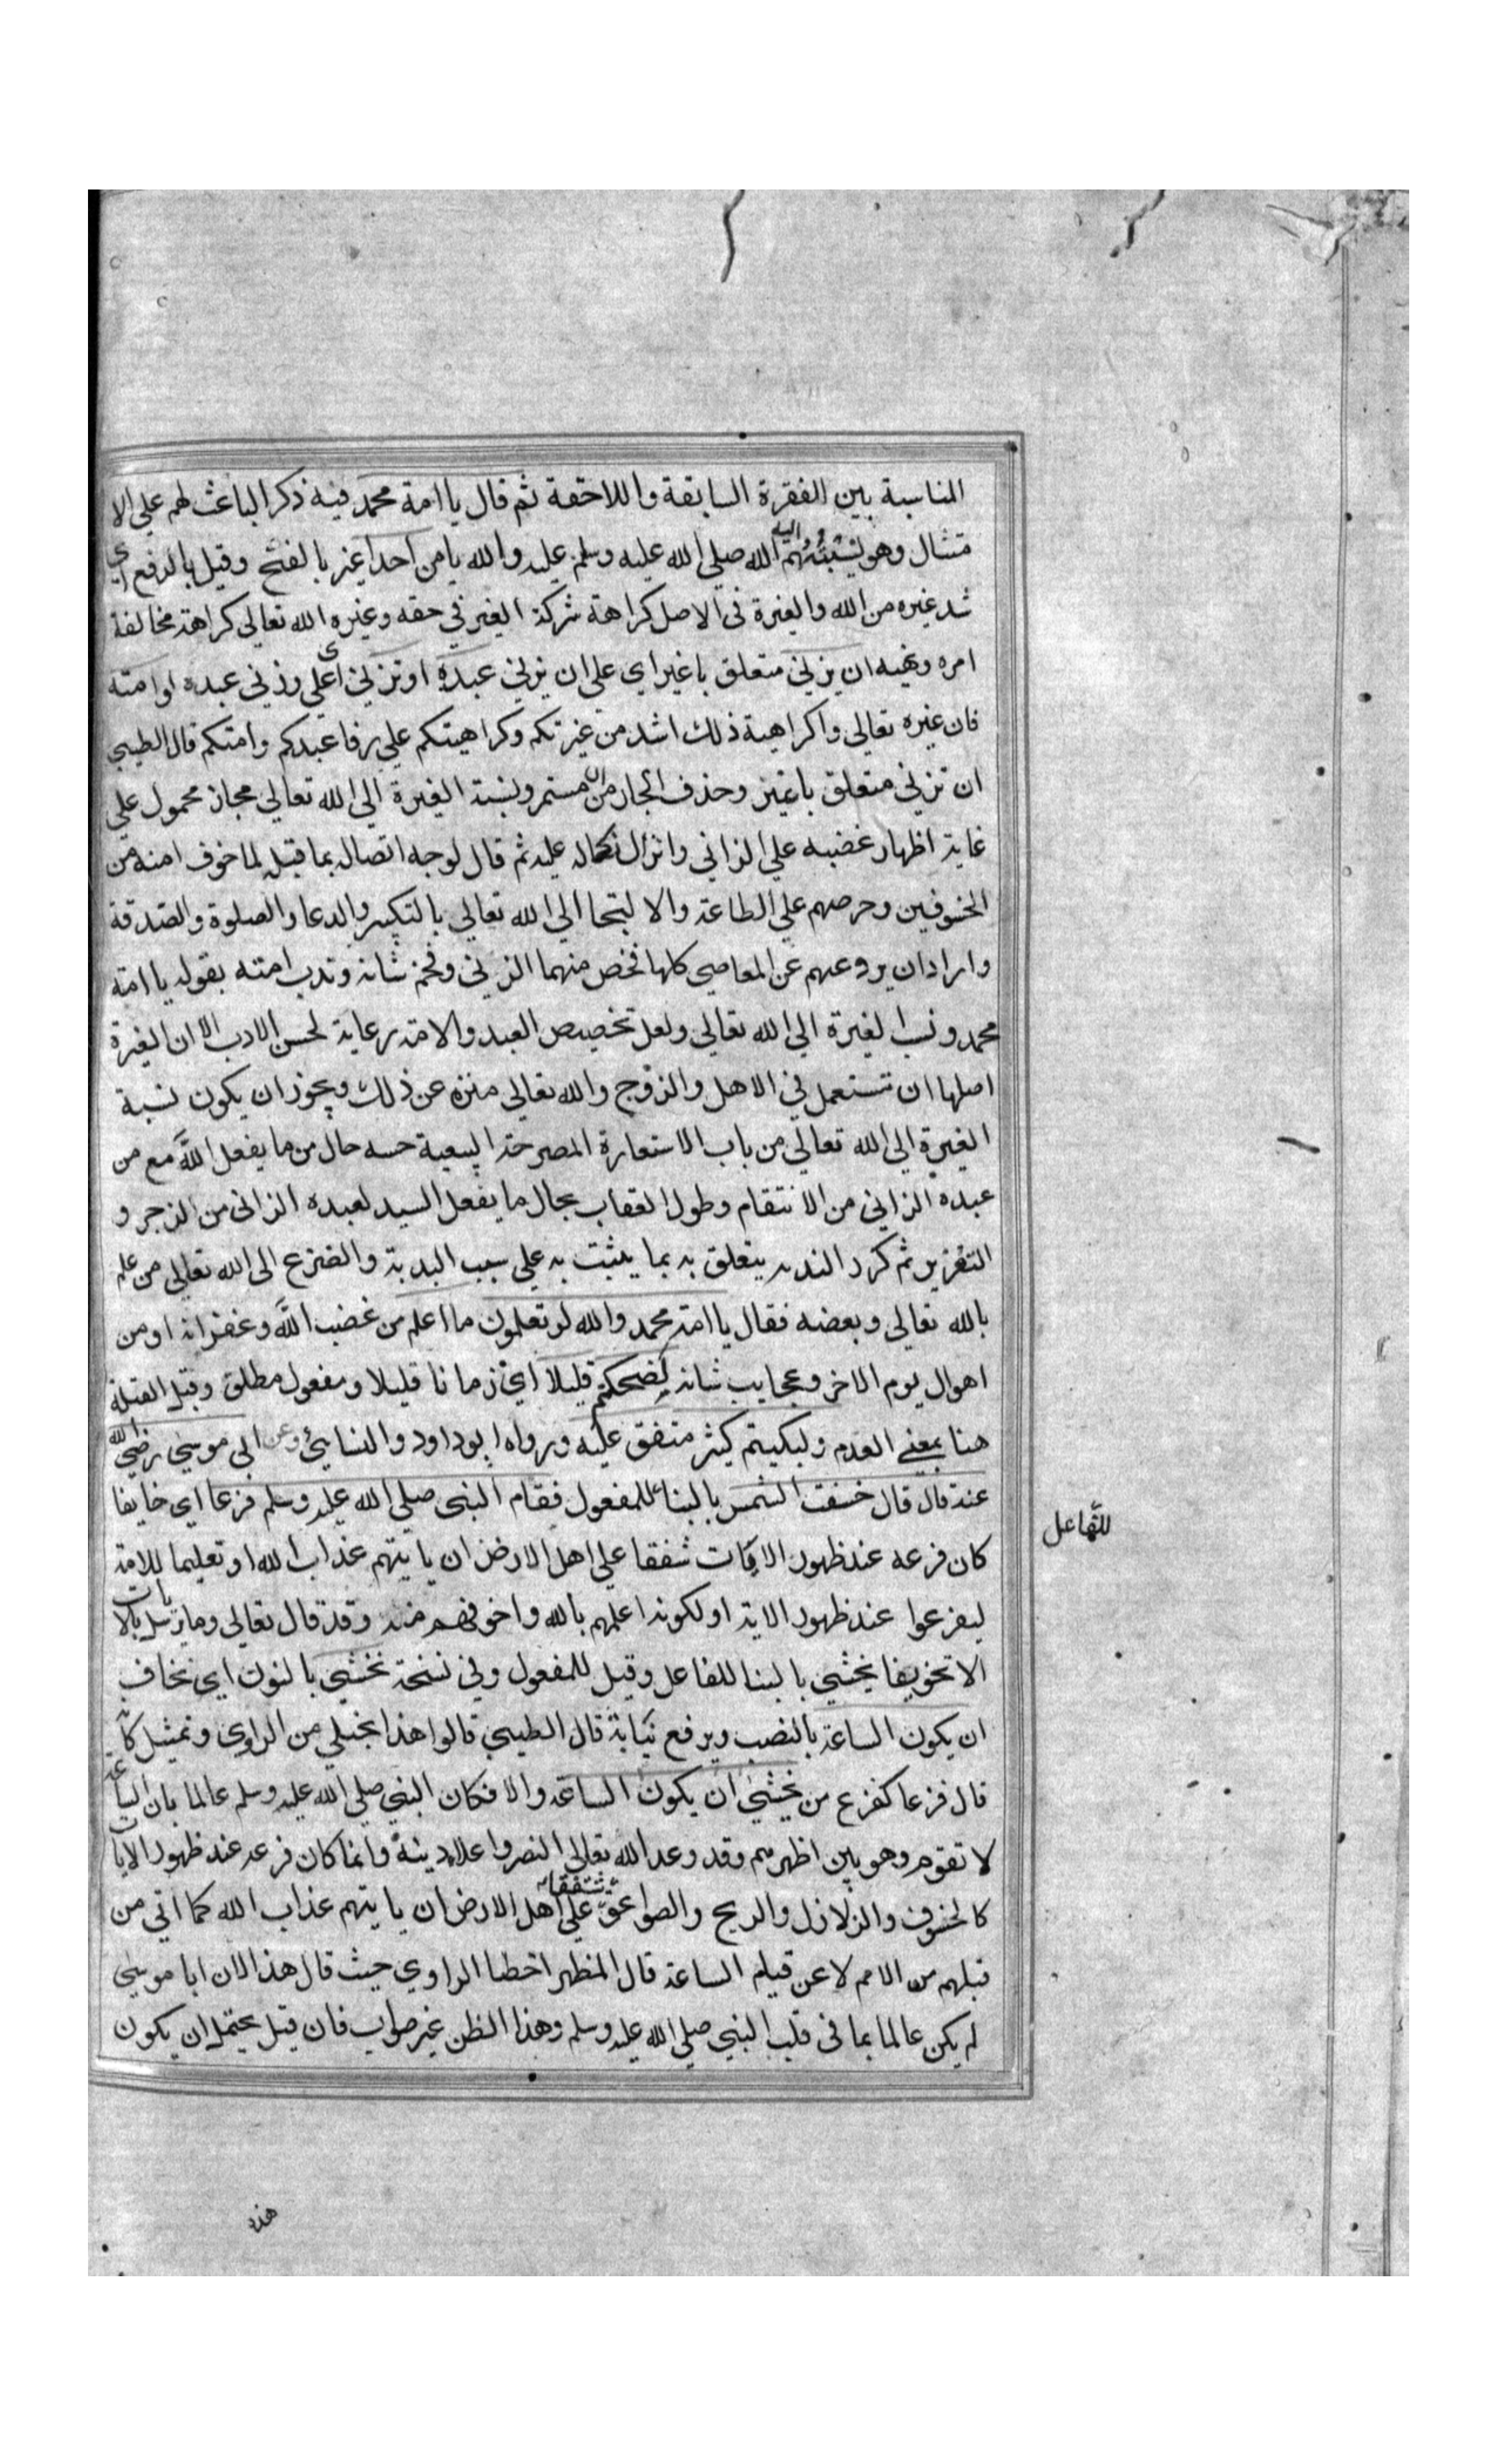 المناسبة بين الفقرة السابقة واللاحقة ثم قال يا امة محمد فيه ذكر الباعث لهم على الا
متثال وهو نسبتهم اليه صلى الله عليه وسلم عليه والله يا من احدا غير بالفتح وقيل بالرفع اي
شد غيره من الله والغيرة فى الاصل كراهة شركة الغير في حقه وغيره الله تعالى كراهة مخالفة
امره ونهيه ان يزني متعلق باغير اي على ان يزني عبده او تزني اي على وزني عبده او امته
فان غيره تعالى واكراهية ذلك اشد من غيرتكم وكراهيتكم علي زفا عبدكم وامتكم قال الطيبي
ان تزني متعلق باغير وحذف الجار من ان مستمر ونسبة الغيرة الي الله تعالي مجاز محمول علي
غاية اظهار غضبه علي الزاني وانزال نكاله عليه ثم قال لوجه اتصاله بما قبله لما خوف امته من
الخسوفين وحرصهم علي الطاعة والا لتجا الي الله تعالي بالتكبير والدعا والصلوة والصدقة
واراد ان يردعهم عن المعاصي كلها فخص منهما الزني وفخم شانه وندب امته بقوله يا امة
محمد ونسب الغيرة الي الله تعالي ولعل تخصيص العبد والامة رعاية لحسن الادب الا ان الغيرة
اصلها ان تستعمل في الاهل والزوج والله تعالى منزه عن ذلك ويجوز ان يكون نسبة
الغيرة الى الله تعالي من باب الاستعارة المصرحة حسه حال من ما يفعل الله مع من
عبده الزاني من الانتقام وطول العقاب بحال ما يفعل السيد لعبده الزانى من الزجر و
التعزير ثم كرر الندبه يتعلق به بما يثبت به علي سبب البدبة والضرع الى الله تعالي من علم
بالله تعالى وبعضه فقال يا امة محمد والله لو تعلمون ما اعلم من غضب الله وغفرانه او من
اهوال يوم الاخر وعجايب شانه لضحكتم قليلا اي زمانا قليلا ومفعول مطلق وقيل القلة
هنا بمعني العدم ولبكيتم كثير متفق عليه ورواه ابو داود والنسايي وعن ابي موسي رضي الله
عنه قال قال خسفت الشمس بالبنا للمفعول فقام النبى صلى الله عليه وسلم فزعا اي خايفا
للفاعل
كان فزعه عند ظهور الايات شفقا علي اهل الارض ان ياتيهم عذاب الله او تعليما للامة
ليفزعوا عند ظهور الاية او لكونه اعلمهم بالله واخوفهم منه وقد قال تعالى وما نرسل بالايات
الا تخويفا يخشي بالبنا للفاعل وقيل للمفعول وفي نسخة نخشي بالنون اي نخاف
ان يكون الساعة بالنصب ويرفع نيابة قال الطيبي قالوا هذا تخيلي من الراوى وتمثيل كانه
قال فزعا كفزع من يخشي ان يكون الساعة والا فكان النبي صلي الله عليه وسلم عالما بان الساعة
لا تقوم وهو بين اظهرهم وقد وعد الله تعالي النصر واعلاء دينه وانما كان فزعه عند ظهور الايات
كالخسوف والزلازل والريح والصواعق شفقا على اهل الارض ان ياتيهم عذاب الله كما اتي من
قبلهم من الامم لا عن قيام الساعة قال المظهر اخطا الراوي حيث قال هذا لان ابا موسي
لم يكن عالما بما فى قلب النبي صلي الله عليه وسلم وهذا الظن غير صواب فان قيل يحتمل ان يكون
هذه